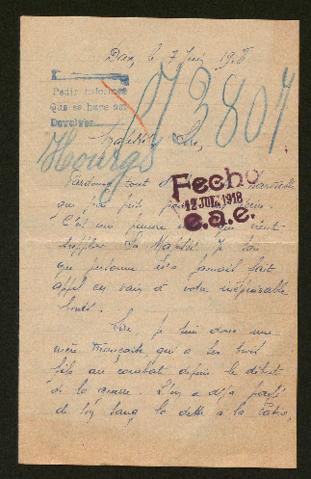 Dax, le 7 Juin 1918
Pedir informes
Que se haga así
Devolver
73807
Hourg
Majesté
Fecho
12 JUL. 1918
e.a.e.
Pardonnez tout d'
que j'ai pris pour
C'est une pauvre qui vient
supplier Sa Majesté. Je sais
que personne n'a jamais fait
appel en vain à votre inépuisable
bonté.
Sire je suis donc une
mère Française qui a ses trois
fils au combat depuis le début
de la guerre. L'un a déjà payé
de son sang la dette à la Patrie,